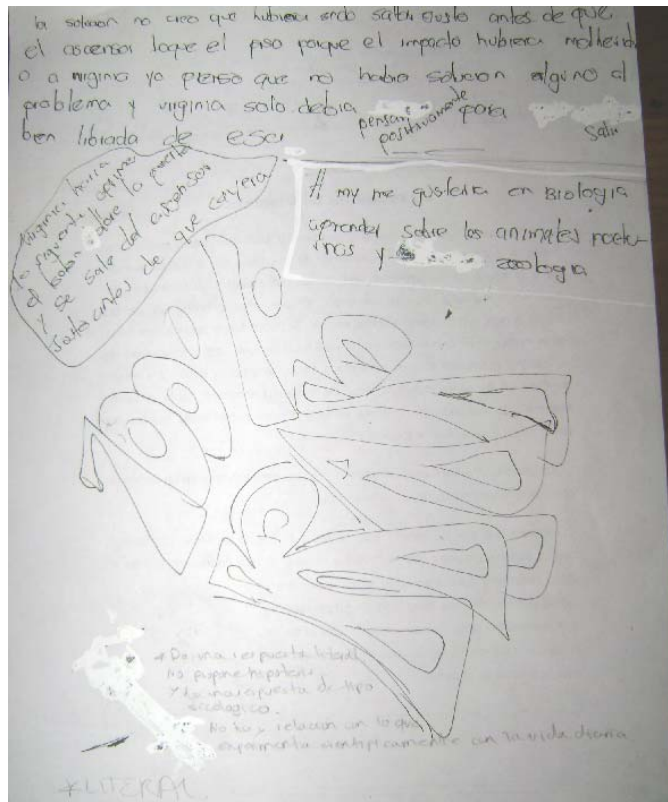 la solucion no creo que hubiera sido saltar justo antes de que
el ascensor toque el piso porque el impacto hubiera
o a virginia yo pienso que no habia solucion alguno al
problema y virginia solo debia pensar positivamente para salir
bien librada de esa
virginia haria
lo siguiente oprime
el boton abre la puerta
y se sale del ascensor
justo antes de que cayera
A my me gustaria en Biologia
aprender sobre los animales noctur-
nos y zoologia
* Da una respuesta literal
No propone hipotesis
y da una respuesta de tipo
No hay relacion con lo que
experimenta cientificamente con la vida diaria
*LITERAL